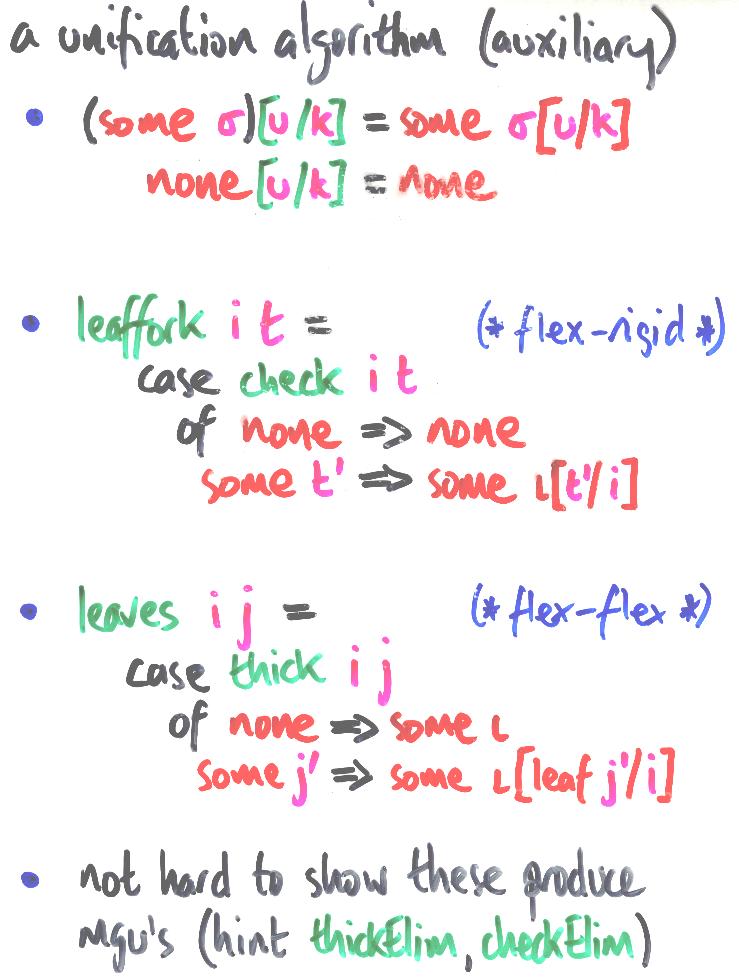 a unification algorithm (auxiliary)
• (some σ)[u/k] = some σ[u/k]
none[u/k] = none
• leaffork i t = (* flex-rigid *)
case check i t
of none => none
some t' => some ι[t'/i]
• leaves i j = (* flex-flex *)
case thick i j
of none => some ι
some j' => some ι[leaf j'/i]
• not hard to show these produce
mgu's (hint thickElim, checkElim)